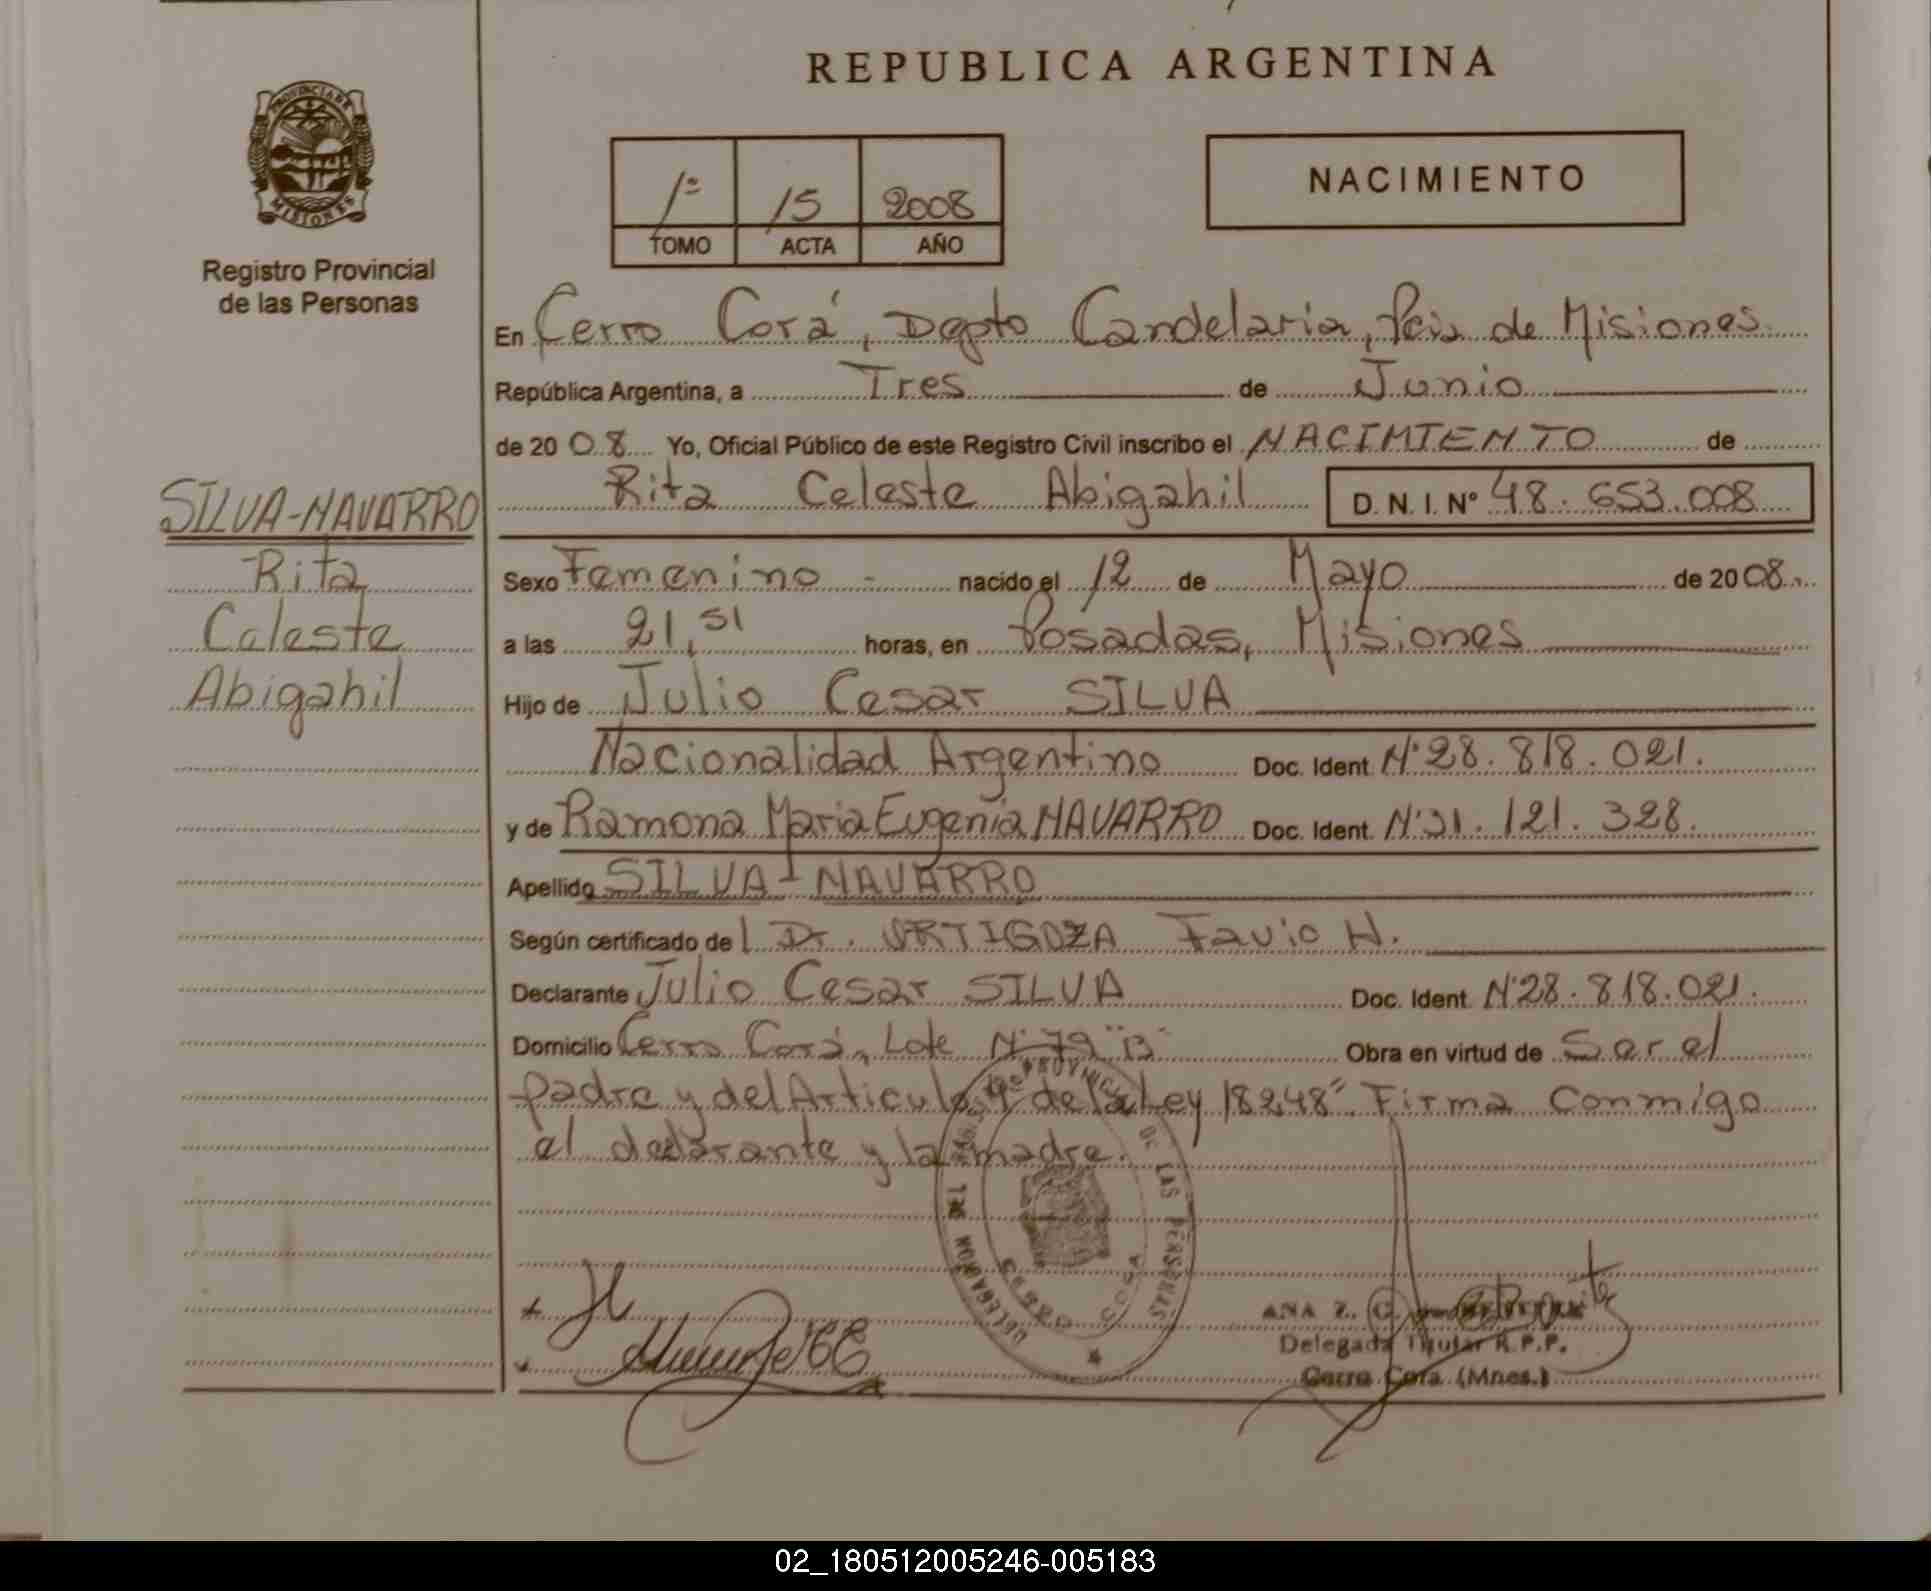 REPUBLICA ARGENTINA
PROVINCIA DE
MISIONES
Registro Provincial
de las Personas
1º 15 2008
TOMO ACTA AÑO
NACIMIENTO
En Cerro Corá, Depto Candelaria, Pcia de Misiones
República Argentina, a Tres de Junio
de 20 08 Yo, Oficial Público de este Registro Civil inscribo el NACIMIENTO de
Rita Celeste Abigahil D. N. I. Nº 48.653.008
SILVA-NAVARRO
Rita
Celeste
Abigahil
Sexo Femenino - nacido el 12 de Mayo de 20 08
a las 21,51 horas, en Posadas, Misiones
Hijo de Julio Cesar SILVA
Nacionalidad Argentino Doc. Ident. Nº 28.818.021.
y de Ramona Maria Eugenia NAVARRO Doc. Ident. Nº 31.121.328.
Apellido SILVA-NAVARRO
Según certificado de l Dr. ORTIGOZA Favio H.
Declarante Julio Cesar SILVA Doc. Ident. Nº 28.818.021.
Domicilio Cerro Corá, Lote Nº 79 "B" Obra en virtud de Ser el
padre y del Articulo 4º de la Ley 18248" Firma Conmigo
el declarante y la madre.
DELEGACION DEL PROVINCIAL DE LAS PERSONAS
CERRO CORA
ANA Z. G.
Delegada Titular R.P.P.
Cerro Cora (Mnes.)
02_180512005246-005183